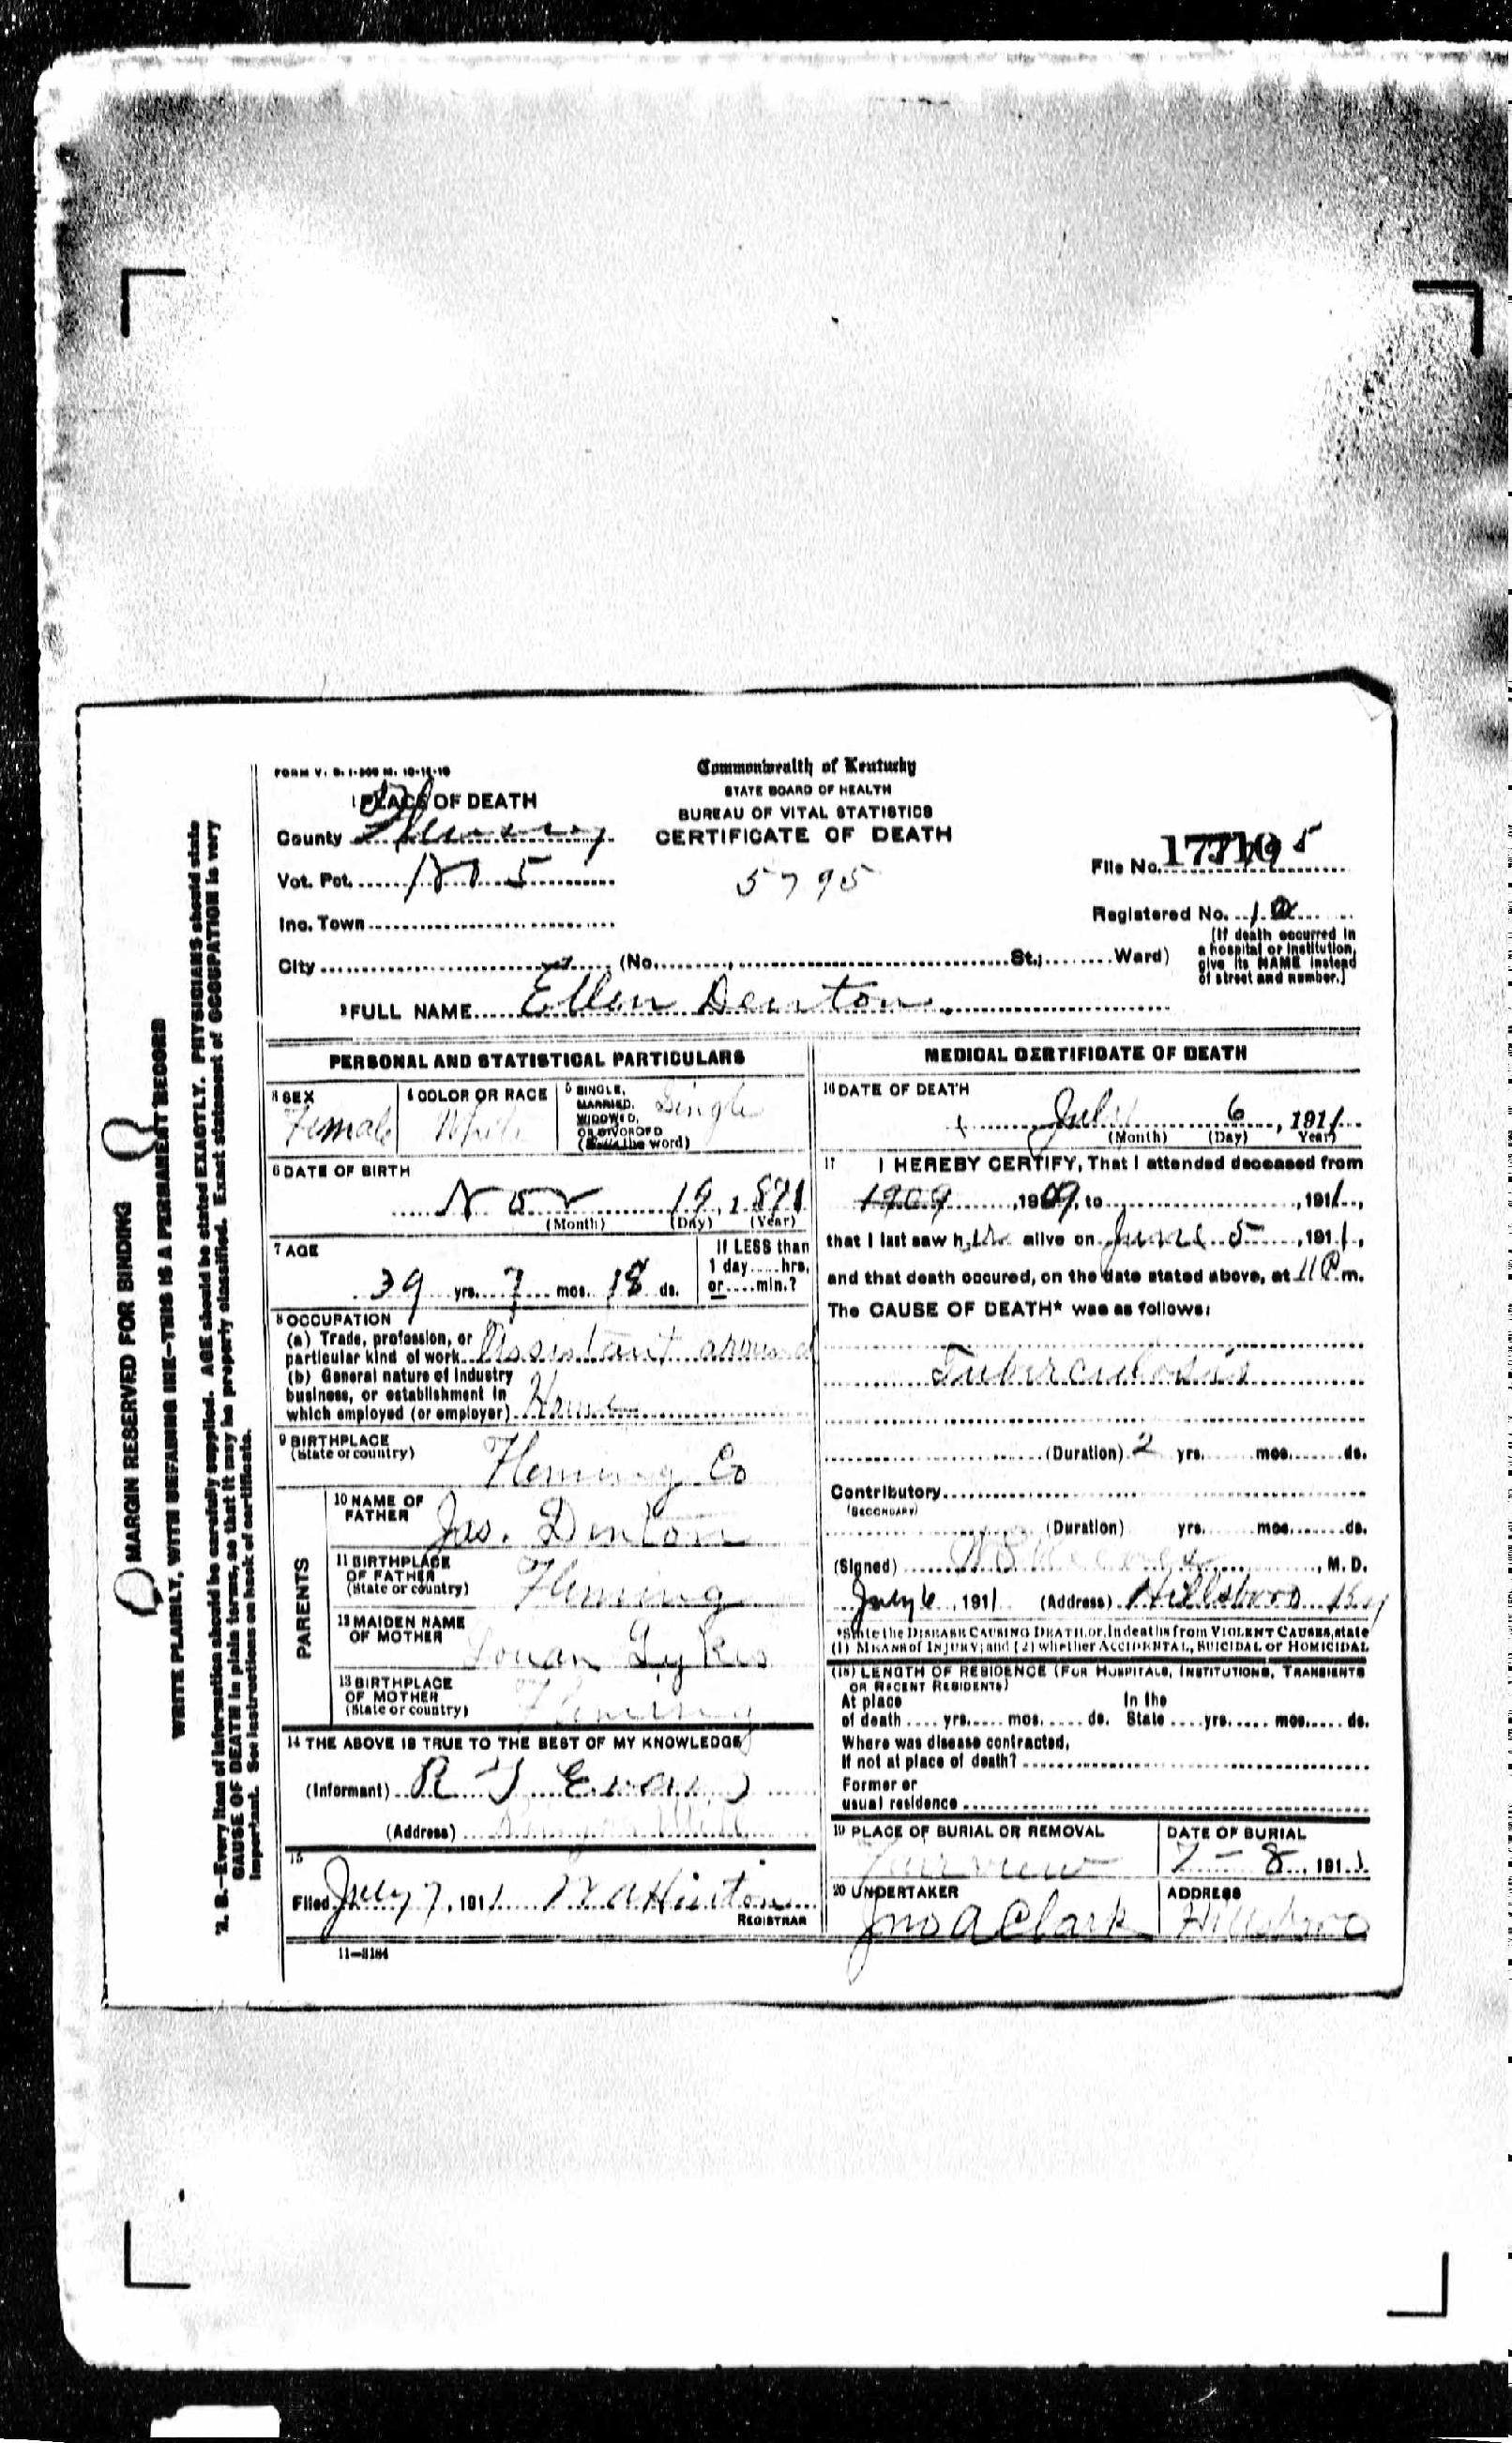 FORM V. S. 1-500 M. 10-15-10
Commonwealth of Kentucky
STATE BOARD OF HEALTH
BUREAU OF VITAL STATISTICS
CERTIFICATE OF DEATH
1 PLACE OF DEATH
County Fleming
Vot. Pct. No 5
Inc. Town
City (No. St.; Ward)
5795
File No.
Registered No.
(If death occurred in
a hospital or institution,
give its NAME instead
of street and number.)
2 FULL NAME Ellen Denton
PERSONAL AND STATISTICAL PARTICULARS
3 SEX
Female
4 COLOR OR RACE
White
5 SINGLE,
MARRIED,
WIDOWED,
OR DIVORCED
(Write the word)
Single
6 DATE OF BIRTH
Nov 19, 1871
(Month) (Day) (Year)
7 AGE
39 yrs. 7 mos. 18 ds.
If LESS than
1 day hrs.
or min.?
8 OCCUPATION
(a) Trade, profession, or
particular kind of work Assistant around
(b) General nature of industry
business, or establishment in
which employed (or employer) Home
9 BIRTHPLACE
(State or country)
Fleming Co
PARENTS
10 NAME OF
FATHER
Jas. Denton
11 BIRTHPLACE
OF FATHER
(State or country)
Fleming
12 MAIDEN NAME
OF MOTHER
13 BIRTHPLACE
OF MOTHER
(State or country)
Fleming
14 THE ABOVE IS TRUE TO THE BEST OF MY KNOWLEDGE
(Informant) R Evans
(Address)
15
Filed July 7, 1911 Hinton
REGISTRAR
11-3184
MEDICAL CERTIFICATE OF DEATH
16 DATE OF DEATH
July 6, 1911
(Month) (Day) Year)
17 I HEREBY CERTIFY, That I attended deceased from
1909, 1909, to , 1911,
that I last saw her alive on June 5, 1911,
and that death occured, on the date stated above, at 11 P m.
The CAUSE OF DEATH* was as follows:
Tuberculosis
(Duration) 2 yrs. mos. ds.
Contributory
(SECONDARY)
(Duration) yrs. mos. ds.
(Signed) , M. D.
July 6, 1911 (Address) Hillsboro Ky
*State the DISEASE CAUSING DEATH, or, in deaths from VIOLENT CAUSES, state
(1) MEANS of INJURY; and (2) whether ACCIDENTAL, SUICIDAL or HOMICIDAL
(18) LENGTH OF RESIDENCE (FOR HOSPITALS, INSTITUTIONS, TRANSIENTS
OR RECENT RESIDENTS)
At place In the
of death yrs. mos. ds. State yrs. mos. ds.
Where was disease contracted,
if not at place of death?
Former or
usual residence
19 PLACE OF BURIAL OR REMOVAL
Fairview
DATE OF BURIAL
7-8, 1911
20 UNDERTAKER
Jno A Clark
ADDRESS
Hillsboro
MARGIN RESERVED FOR BINDING
WRITE PLAINLY, WITH UNFADING INK-THIS IS A PERMANENT RECORD
N. B.-Every item of information should be carefully supplied. AGE should be stated EXACTLY. PHYSICIANS should state
CAUSE OF DEATH in plain terms, so that it may be properly classified. Exact statement of OCCUPATION is very
important. See instructions on back of certificate.